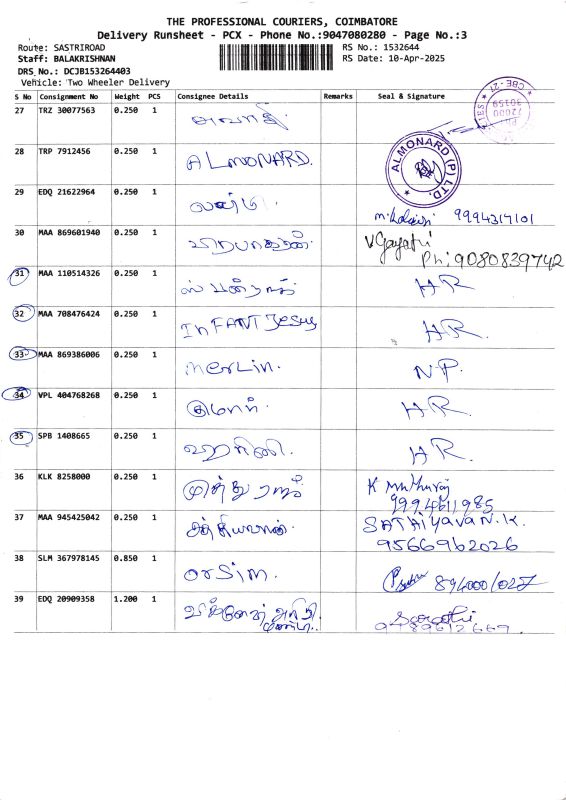 THE PROFESSIONAL COURIERS, COIMBATORE
Delivery Runsheet - PCX - Phone No.:9047080280 - Page No.:3
Route: SASTRIROAD RS No.: 1532644
Staff: BALAKRISHNAN RS Date: 10-Apr-2025
DRS No.: DCJB153264403
Vehicle: Two Wheeler Delivery
S No Consignment No Weight PCS Consignee Details Remarks Seal & Signature
27 TRZ 30077563 0.250 1
28 TRP 7912456 0.250 1 ALMONARD. ALMONARD (P) LTD.
29 EDQ 21622964 0.250 1 9994317101
30 MAA 869601940 0.250 1 V Gayatri
Ph: 9080839742
31 MAA 110514326 0.250 1 HR
32 MAA 708476424 0.250 1 INFANT Jesus HR.
33 MAA 869386006 0.250 1 merlin. N.P.
34 VPL 404768268 0.250 1 குமார். HR.
35 SPB 1408665 0.250 1 ஹரிணி. HR.
36 KLK 8258000 0.250 1 முத்து ராஜ் K Muthuraj
9994611985
37 MAA 945425042 0.250 1 சத்தியவான். SATHIYAVAN.K.
9566962026
38 SLM 367978145 0.850 1 orsim.
39 EDQ 20909358 1.200 1 Sarathi